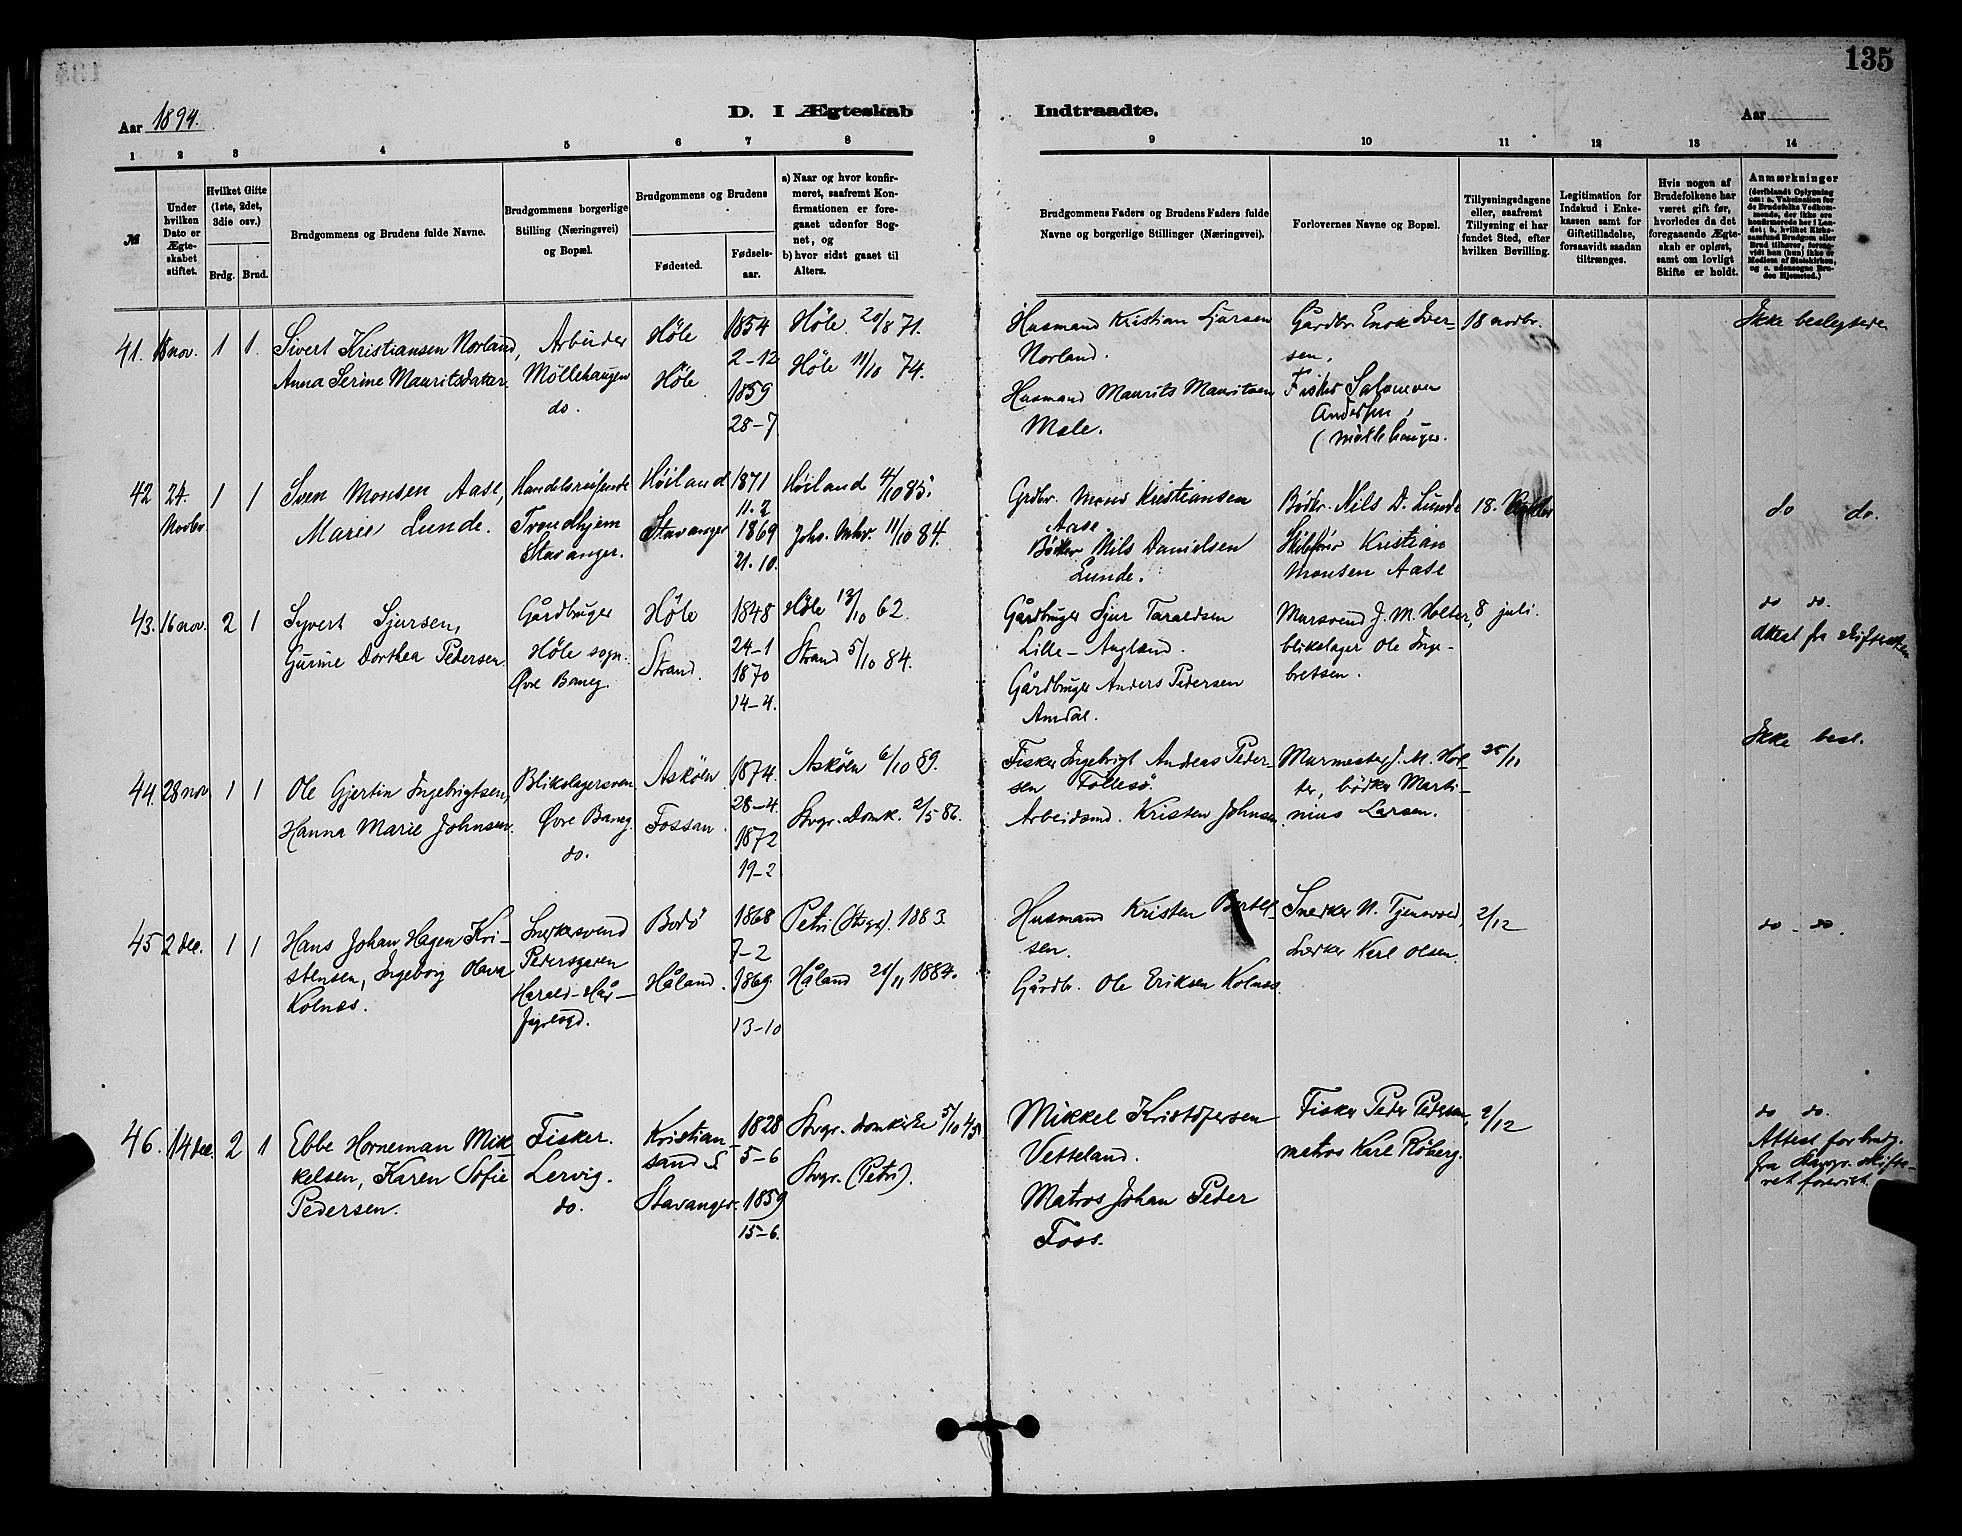 135
Aar 1894.
D. I Ægteskab
Indtraadte.
Aar
1 2 3 4 5 6 7 8
9 10 11 12 13 14
№
Under hvilken Dato er Ægteskabet stiftet.
Hvilket Gifte (1ste, 2det, 3die osv.)
Brdg. Brud.
Brudgommens og Brudens fulde Navne.
Brudgommens borgerlige Stilling (Næringsvei) og Bopæl.
Brudgommens og Brudens
Fødested.
Fødselsaar.
a) Naar og hvor konfirmeret, saafremt Konfirmationen er foregaaet udenfor Sognet, og
b) hvor sidst gaaet til Alters.
Brudgommens Faders og Brudens Faders fulde Navne og borgerlige Stillinger (Næringsvei).
Forlovernes Navne og Bopæl.
Tillysningsdagene eller, saafremt Tillysning ei har fundet Sted, efter hvilken Bevilling.
Legitimation for Indskud i Enkekassen samt for Giftetilladelse, forsaavidt saadan tiltrænges.
Hvis nogen af Brudefolkene har været gift før, hvorledes da det foregaaende Ægteskab er opløst, samt om lovligt Skifte er holdt.
Anmærkninger
41. 18 nov. 1 1.
Sivert Kristiansen Norland,
Anna Serine Mauritsdatter.
Arbeider
Møllehaugen
do.
Høle
Høle
1854
2-12
1859
28-7
Høle 20/8 71.
Høle 11/10 74.
Husmand Kristian
Norland.
Husmand Maurits Mauritsen
Mele.
Gårdbr. Enok Iversen.
Fisker Salomon
Andersen,
(Møllehaugen.
18 novbr.
Ikke beslegtede
42 24. Novbr 1 1
Sven Monsen Aase,
Marie Lunde.
Handelsreisende
Trondhjem
Stavanger.
Høiland
Stavanger
1871
11.2
1869
21.10.
Høiland 4/10 85.
Johs. 11/10 84.
Grdbr. Mons Kristiansen
Aase
Bødker Nils Danielsen
Lunde.
Bødkr. Nils D. Lunde
Kristian
Monsen Aase
18.
do do.
43. 16 nov. 2 1
Syvert Sjursen,
Gurine Dorthea Pedersen
Gårdbruger
Høle sogn.
Øvre Baneg.
Høle
Strand.
1848
24-1
1870
14-4.
Høle 13/10 62.
Strand 5/10 84.
Gårdbruger Sjur Taraldsen
Lille-Augland.
Gårdbruger Anders Pedersen
Amdal.
Mursvend J. M. Holter,
blikslager Ole Ingebretsen.
8 juli.
do do.
Attest fra skifteretten
44. 28 nov 1 1
Ole Gjertin Ingebrigtsen,
Hanna Marie Johnsen.
Blikslagersven
Øvre Baneg.
do.
Askøen
Fossan.
1874.
28-4.
1872
19-2
Askøen 6/10 89.
Stvgr. Domk. 2/5 86.
Fisker Ingebrigt Andreas Pedersen
Follesø.
Arbeidsmd. Kristen Johnsen
Murmester J. M. Holter,
bødker Martinius
Larsen.
25/11
Ikke besl.
45 2 dec. 1 1
Hans Johan Hagen Kristensen,
Ingeborg Olava
Kolnes.
Snekkersvend
Pedersgaden
Harald-Hårfagrlsgd.
Bodø
Håland.
1868
7-2
1869
13-10
Petri (Stvgr). 1883.
Håland 20/11 1884.
Husmand Kristen Bertelsen.
Gårdbr. Ole Eriksen Kolnes.
Snekker N. Tjensvold
Snekker Karl Olsen
2/12
do - do.
46. 14 dec. 2 1
Ebbe Horneman Mikkelsen,
Karen Sofie
Pedersen.
Fisker.
Lervig.
do.
Kristiansand S
Stavanger.
1828
5-6
1859
15-6.
Stvgr. domkirke 5/10 45
Stvgr. (Petri).
Mikkel Kristofersen
Vetteland.
Matros Johan Peder
Foss.
Fisker Peder Pedersen,
matros Karl Røberg.
2/12
do do.
Attest for brudg.
fra Stavgr. skifteret
forevist.